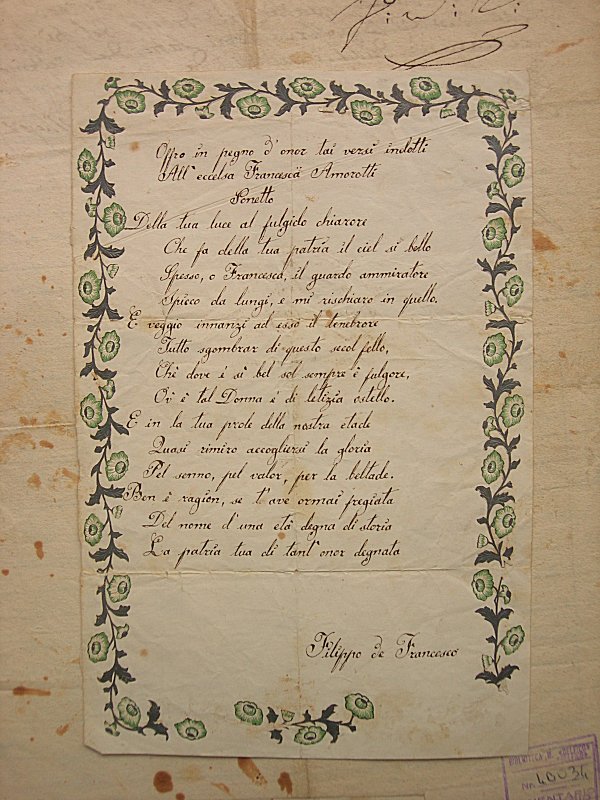 F. D. V.
Offro in pegno d'onor tai versi indotti
All'eccelsa Francesca Amorotti
Sonetto
Della tua luce al fulgido chiarore
Che fa della tua patria il ciel si bello
Spesso, o Francesca, il guardo ammiratore
Spicco da lungi, e mi rischiaro in quello.
E veggio innanzi ad esso il tenebrore
Tutto sgombrar di questo secol fello,
Chè dove è sì bel sol sempre è fulgore,
Ov'è tal Donna è di letizia ostello.
E in la tua prole della nostra etade
Quasi rimiro accogliersi la gloria
Pel senno, pel valor, per la beltade.
Ben è ragion, se t'ave ormai fregiata
Del nome d'una età degna di storia
La patria tua di tant'onor degnata
Filippo de Francesco
BIBLIOTECA
N° 40034
INVENTARIO